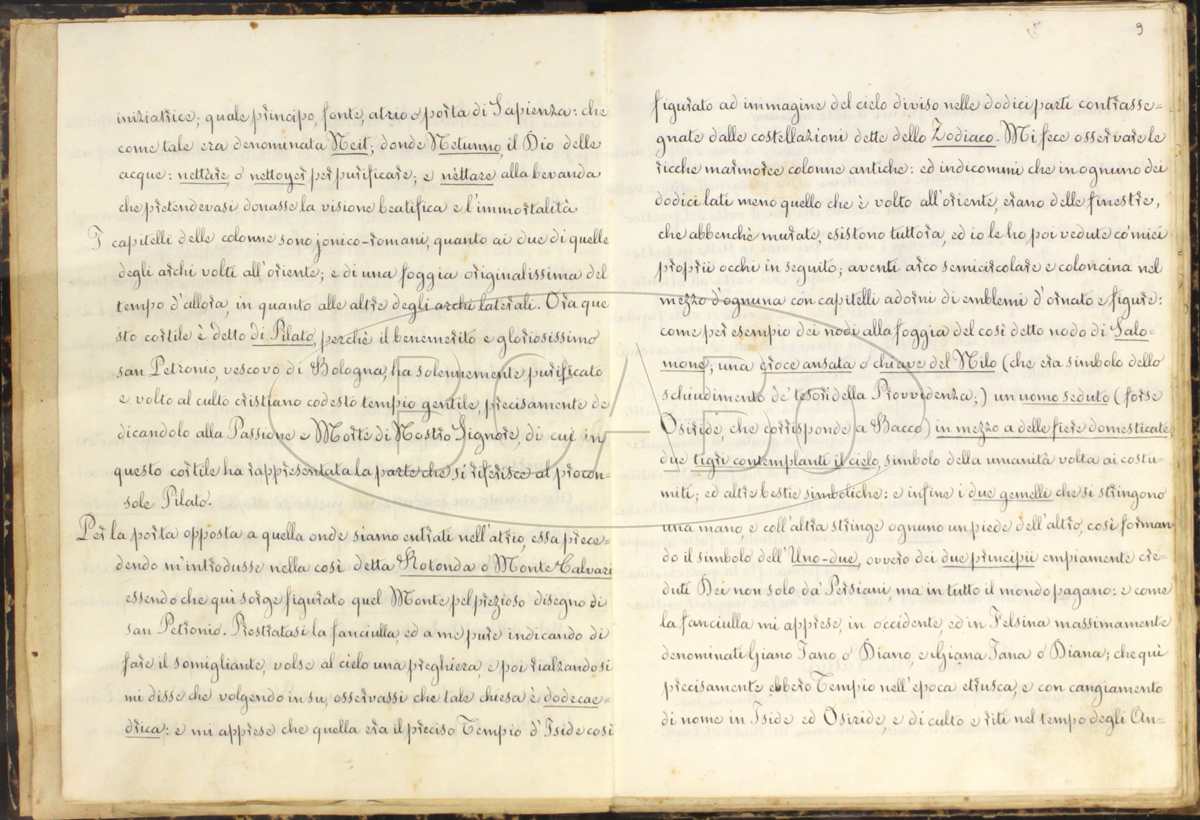 iniziatrice; quale principo, fonte, atrio o porta di Sapienza: che
come tale era denominata Neit; donde Netunno, il Dio delle
acque: nettare, o nettoyer per purificare; e nèttare alla bevanda
che pretendevasi donasse la visione beatifica e l'immortalità
I capitelli delle colonne sono jonico-romani, quanto ai due di quelle
degli archi volti all'oriente; e di una foggia originalissima del
tempo d'allora, in quanto alle altre degli archi laterali. Ora que
sto cortile è detto di Pilato, perchè il benemerito e gloriosissimo
san Petronio, vescovo di Bologna, ha solennemente purificato
e volto al culto cristiano codesto tempio gentile, precisamente de
dicandolo alla Passione e Morte di Nostro Signore, di cui in
questo cortile ha rappresentata la parte che si riferisce al procon-
sole Pilato.
Per la porta opposta a quella onde siamo entrati nell'atrio, essa prece=
dendo m'introdusse nella così detta Rotonda o Monte Calvari
essendo che quì sorge figurato quel Monte pel prezioso disegno di
san Petronio. Prostratasi la fanciulla, ed a me pure indicando di
fare il somigliante, volse al cielo una preghiera, e poi rialzandosi
mi disse che volgendo in su, osservassi che tale chiesa è dodecae=
drica: e mi apprese che quella era il preciso Tempio d'Iside così
9
figurato ad immagine del cielo diviso nelle dodici parti contrasse=
gnate dalle costellazioni dette dello Zodiaco. Mi fece osservare le
ricche marmoree colonne antiche: ed indicommi che in ognuno dei
dodici lati meno quello che è volto all'oriente, erano delle finestre,
che abbenchè murate, esistono tuttora, ed io le ho poi vedute co' miei
proprii occhi in seguito; aventi arco semicircolare e coloncina nel
mezzo d'ognuna con capitelli adorni di emblemi d'ornato e figure:
come per esempio dei nodi alla foggia del così detto nodo di Salo-
mone; una croce ansata o chiave del Nilo (che era simbolo dello
schiudimento de' tesori della Provvidenza;) un uomo seduto (forse
Osiride, che corrisponde a Bacco) in mezzo a delle fiere domesticate
due tigri contemplanti il cielo, simbolo della umanità volta ai costu-
miti; ed altre bestie simboliche: e infine i due gemelli che si stringono
una mano, e coll'altra stringe ognuno un piede dell'altro, così forman
do il simbolo dell'Uno-due, ovvero dei due principii empiamente cre-
duti Dei non solo da' Persiani, ma in tutto il mondo pagano: e come
la fanciulla mi apprese, in occidente, ed in Felsina massimamente
denominati Giano Iano o Diano, e Giana Iana o Diana; che quì
precisamente ebbero Tempio nell'epoca etrusca, e con cangiamento
di nome in Iside ed Osiride, e di culto e riti nel tempo degli An=
BUABO